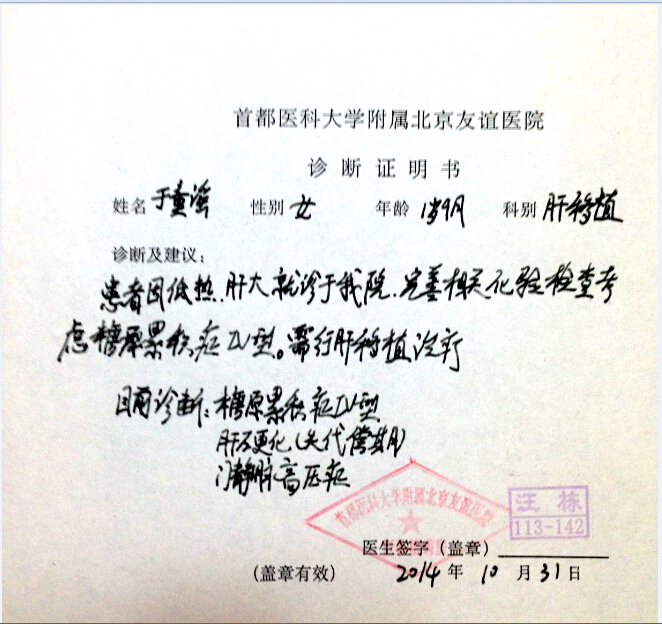 首都医科大学附属北京友谊医院
诊断证明书
姓名 于童谣 性别 女 年龄 1岁9月 科别 肝移植
诊断及建议：
患者因低热、肝大就诊于我院，完善相关化验检查考
虑糖原累积症IV型。需行肝移植治疗
目前诊断：糖原累积症IV型
肝硬化（失代偿期）
门静脉高压症
首都医科大学附属北京友谊医院
汪栋
113-142
医生签字（盖章）
（盖章有效） 2014年10月31日